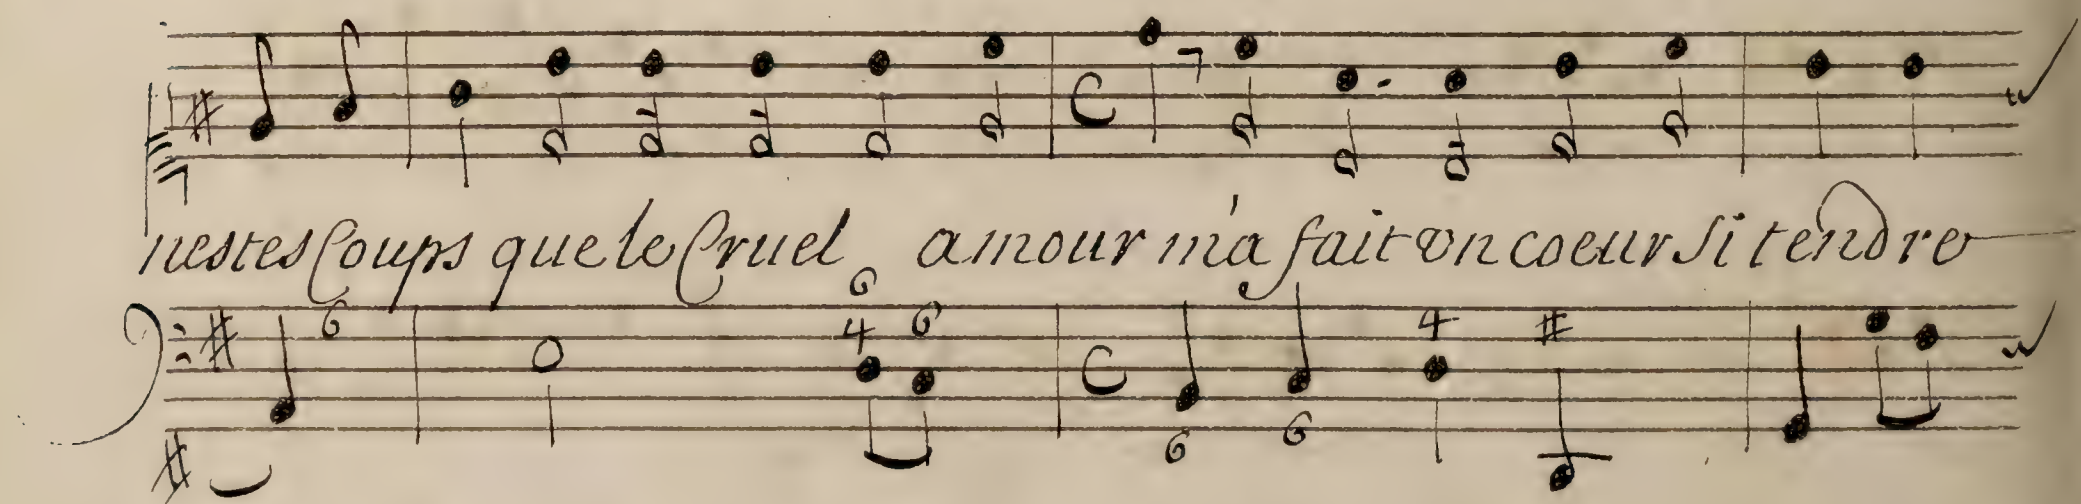 nestes Coups que le Cruel amour m'a fait un coeur si tendre
6 6 4 6 6 6 4